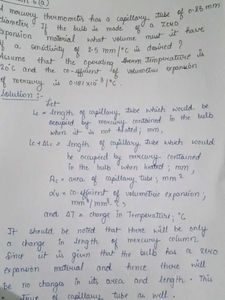 A mercury thermometer has a capillary tube of 0.25 mm
diameter. If the bulb is made of a zero
expansion material what volume must it have
if a sensitivity of 2.5 mm/°C is desired ?
Assume that the operating temperature is
20°C and the co-efficient of volumetric expansion
of mercury is 0.181 x 10⁻³/°C.
Solution :-
Let
Lc = length of capillary tube which would be
occupied by mercury contained in the bulb
when it is not heated ; mm,
Lc + ΔLc = length of capillary tube which would
be occupied by mercury contained
in the bulb when heated ; mm,
Ac = area of capillary tube ; mm²
αv = co-efficient of volumetric expansion ;
mm³/mm³ °C ;
and ΔT = change in Temperature ; °C
It should be noted that there will be only
a change in length of mercury column.
Since it is given that the bulb has a zero
expansion material and hence there will
be no changes in its area and length. This
is true of capillary tube as well.